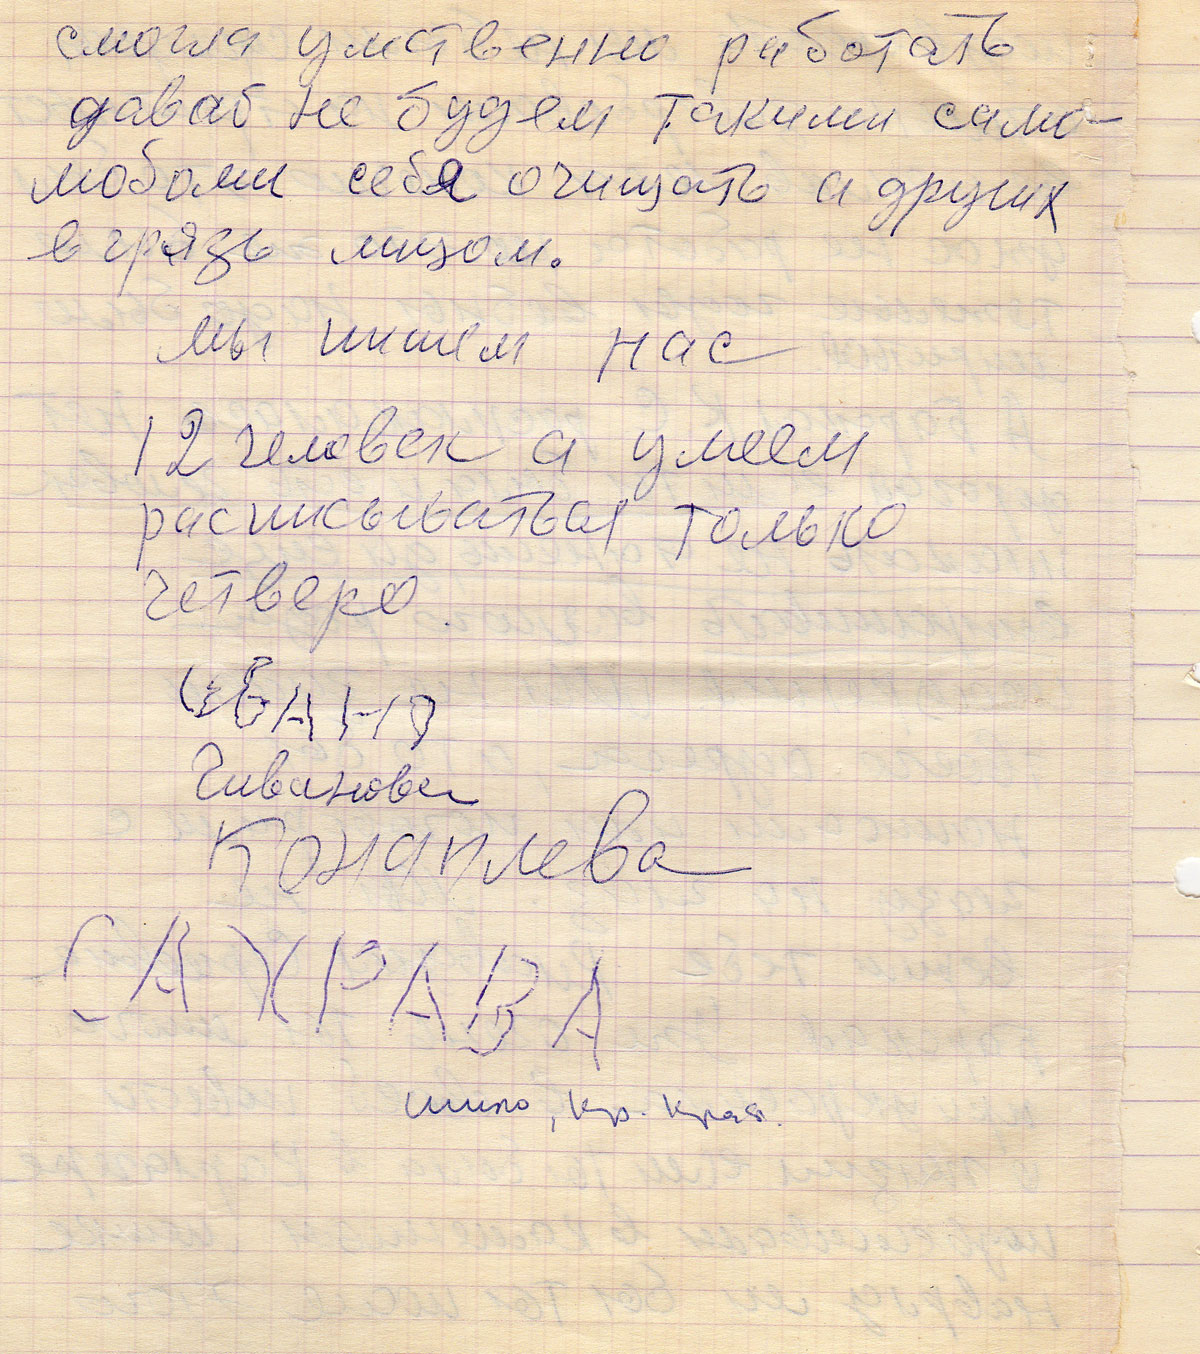 смогла умственно работать
даваб не будем такими само-
любами себя очищать а других
в грязь лицом.
мы пишем нас
12 человек а умеем
расписываться только
четверо.
Иванова
Конаплева
САХРАВА
шило, Кр. Края.